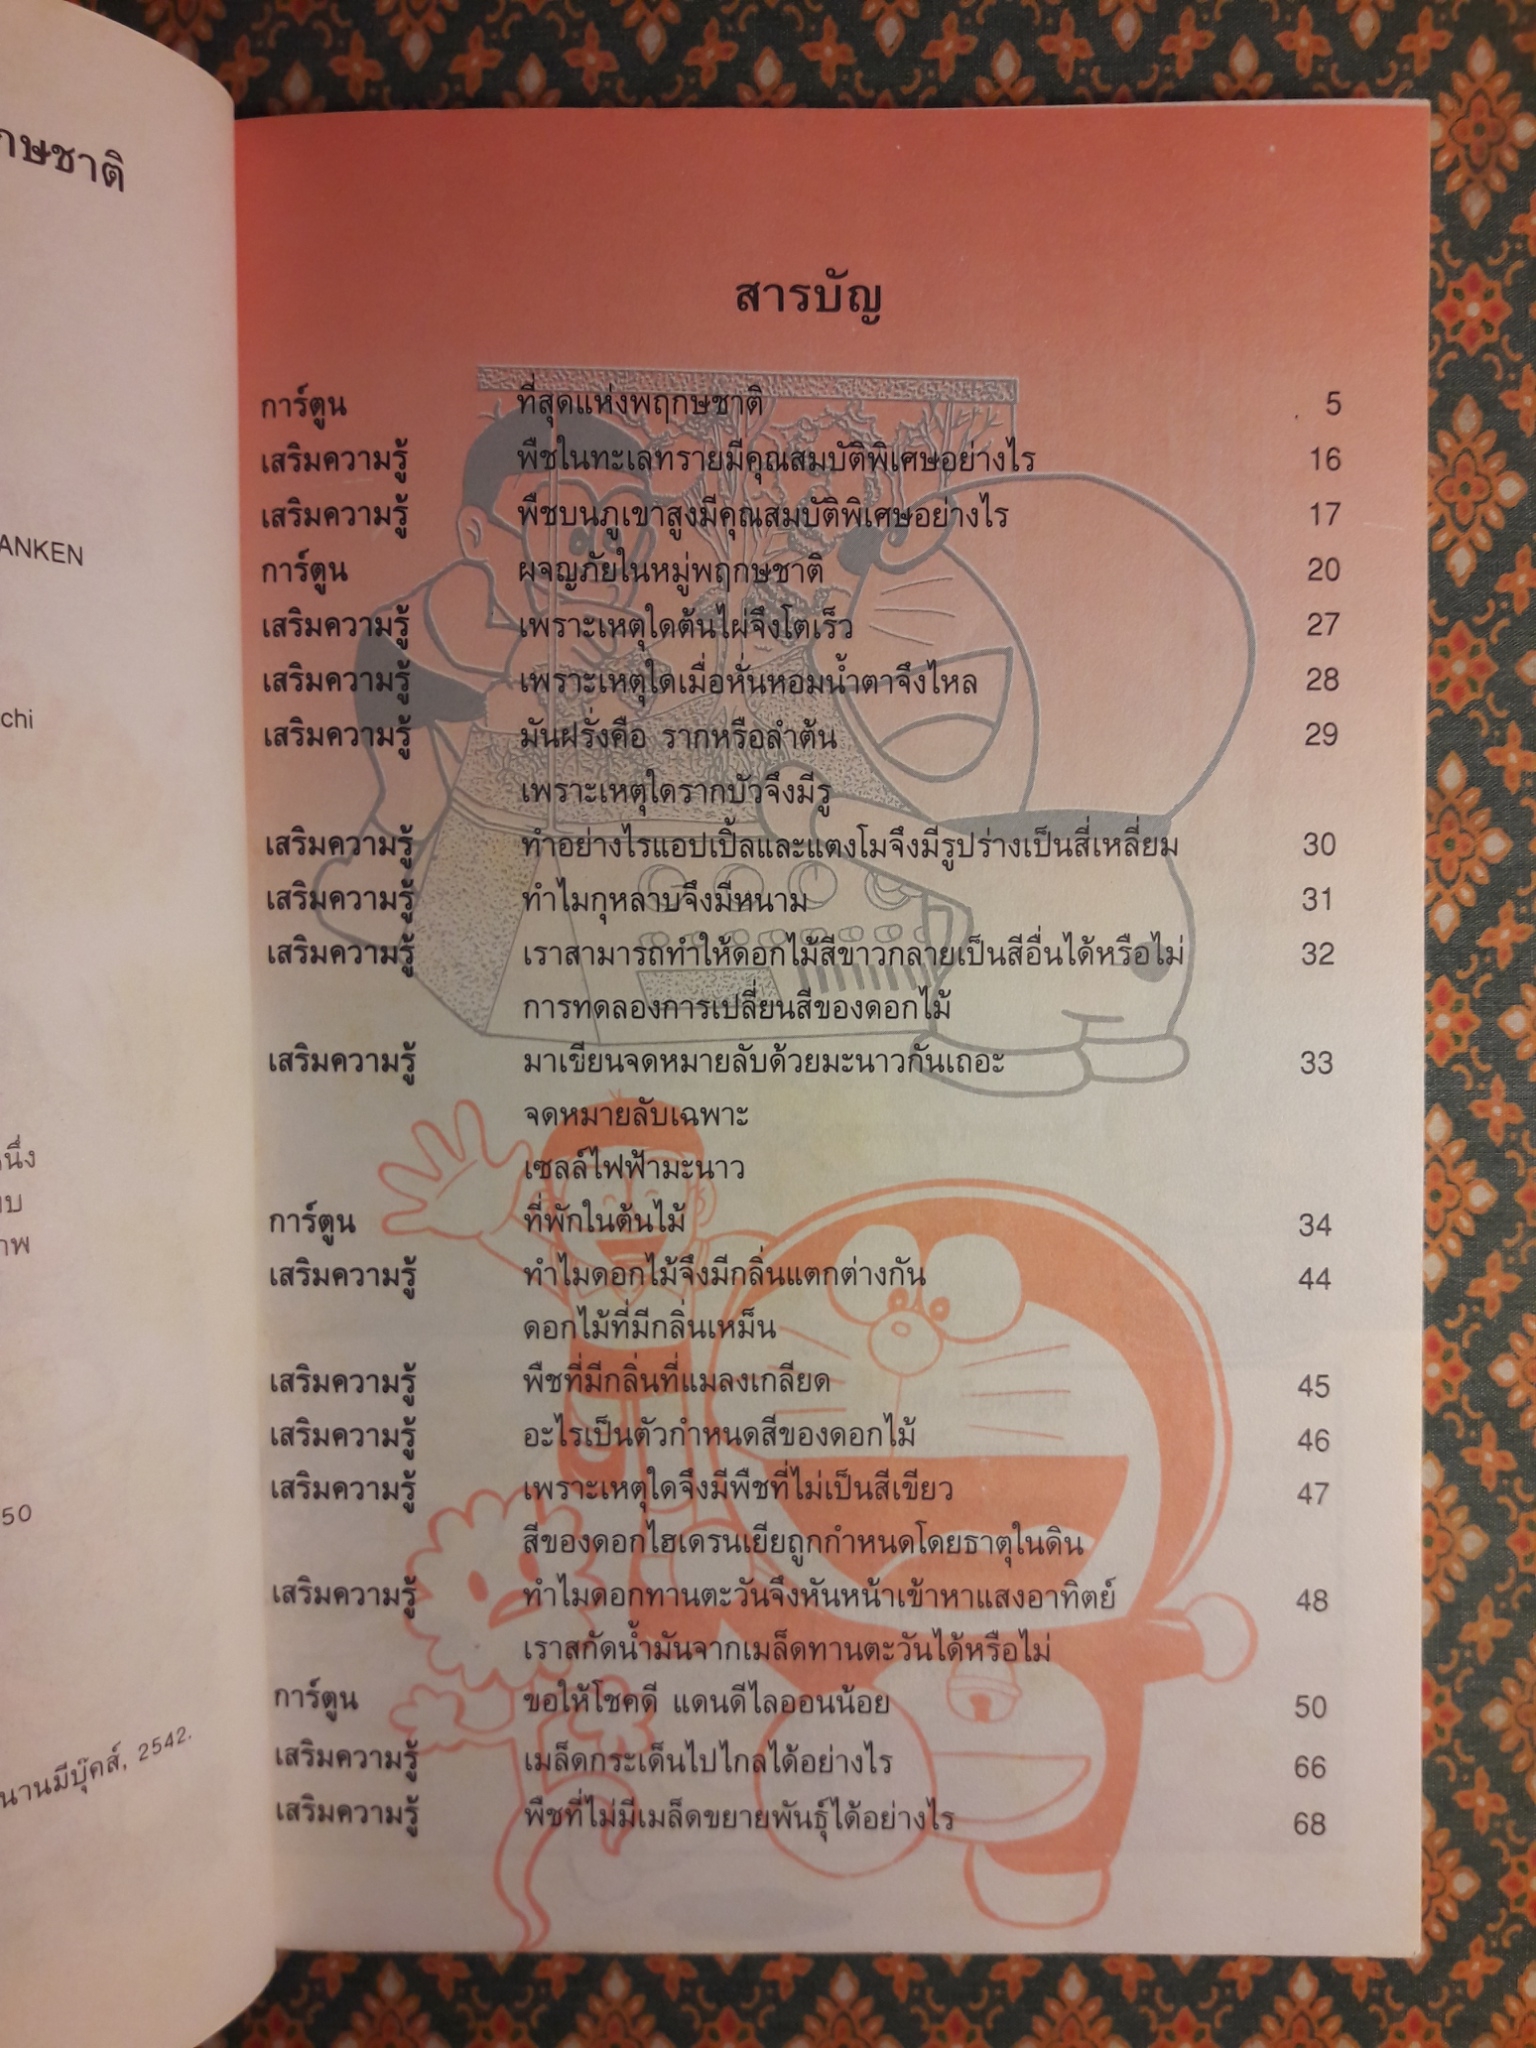 กษชาติ
ANKEN
chi
นึ่ง
าพ
50
นานมีบุ๊คส์, 2542.
สารบัญ
การ์ตูน ที่สุดแห่งพฤกษชาติ 5
เสริมความรู้ พืชในทะเลทรายมีคุณสมบัติพิเศษอย่างไร 16
เสริมความรู้ พืชบนภูเขาสูงมีคุณสมบัติพิเศษอย่างไร 17
การ์ตูน ผจญภัยในหมู่พฤกษชาติ 20
เสริมความรู้ เพราะเหตุใดต้นไผ่จึงโตเร็ว 27
เสริมความรู้ เพราะเหตุใดเมื่อหั่นหอมน้ำตาจึงไหล 28
เสริมความรู้ มันฝรั่งคือ รากหรือลำต้น 29
เพราะเหตุใดรากบัวจึงมีรู
เสริมความรู้ ทำอย่างไรแอปเปิ้ลและแตงโมจึงมีรูปร่างเป็นสี่เหลี่ยม 30
เสริมความรู้ ทำไมกุหลาบจึงมีหนาม 31
เสริมความรู้ เราสามารถทำให้ดอกไม้สีขาวกลายเป็นสีอื่นได้หรือไม่ 32
การทดลองการเปลี่ยนสีของดอกไม้
เสริมความรู้ มาเขียนจดหมายลับด้วยมะนาวกันเถอะ 33
จดหมายลับเฉพาะ
เซลล์ไฟฟ้ามะนาว
การ์ตูน ที่พักในต้นไม้ 34
เสริมความรู้ ทำไมดอกไม้จึงมีกลิ่นแตกต่างกัน 44
ดอกไม้ที่มีกลิ่นเหม็น
เสริมความรู้ พืชที่มีกลิ่นที่แมลงเกลียด 45
เสริมความรู้ อะไรเป็นตัวกำหนดสีของดอกไม้ 46
เสริมความรู้ เพราะเหตุใดจึงมีพืชที่ไม่เป็นสีเขียว 47
สีของดอกไฮเดรนเยียถูกกำหนดโดยธาตุในดิน
เสริมความรู้ ทำไมดอกทานตะวันจึงหันหน้าเข้าหาแสงอาทิตย์ 48
เราสกัดน้ำมันจากเมล็ดทานตะวันได้หรือไม่
การ์ตูน ขอให้โชคดี แดนดีไลออนน้อย 50
เสริมความรู้ เมล็ดกระเด็นไปไกลได้อย่างไร 66
เสริมความรู้ พืชที่ไม่มีเมล็ดขยายพันธุ์ได้อย่างไร 68